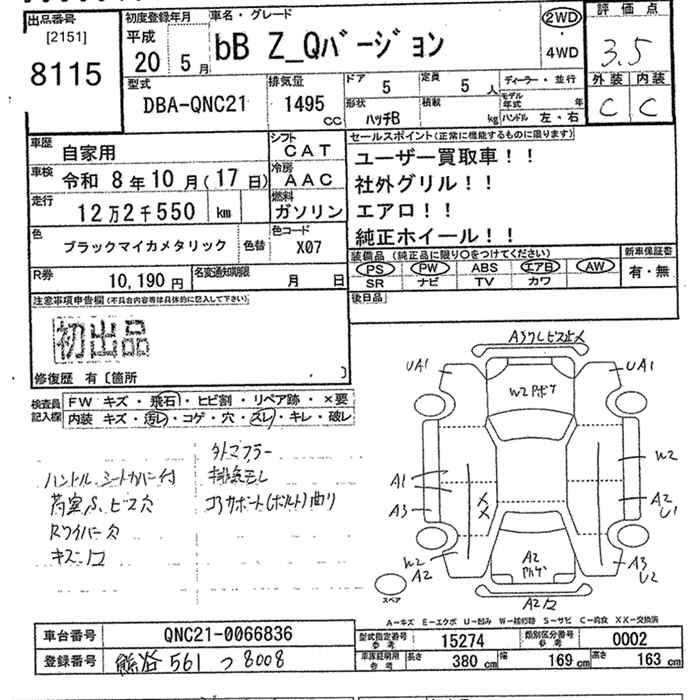 出品番号
[2151]
8115
初度登録年月
平成
20 5月
車名・グレード
bB Z_Qバージョン
2WD
・
4WD
評価点
3.5
外装 内装
C C
型式
DBA-QNC21
排気量
1495 CC
ドア 5
定員 5人
形状 ハッチB
積載 kg
ディーラー・並行
モデル年式 年
ハンドル 左・右
車歴 自家用
車検 令和 8年10月(17日)
走行 12万2千550 km
シフト CAT
冷房 AAC
燃料 ガソリン
色 ブラックマイカメタリック
色替
色コード X07
R券 10,190円
名変通知期限 月 日
セールスポイント(正常に機能するものに限ります)
ユーザー買取車!!
社外グリル!!
エアロ!!
純正ホイール!!
装備品(純正品に限り○をつけてください)
PS PW ABS エアB AW
SR ナビ TV カワ
新車保証書
有・無
後日品
注意事項申告欄(不具合内容等は具体的に記入して下さい)
初出品
修復歴 有〔箇所 〕
検査員記入欄
FW キズ・飛石・ヒビ割・リペア跡・×要
内装 キズ・汚レ・コゲ・穴・スレ・キレ・破レ
ハンドル、シートカバー付
荷室S、ビス穴
Rワイパー欠
キズ凹コ
外マフラー
排気モレ
コアサポート(ボルト)曲り
UA1
UA1
W2
A1
A3
A2
U1
W2
A2
A3
U2
A2
スペア
A-キズ E-エクボ U-凹み W-補修跡 S-サビ C-腐食 XX-交換済
車台番号 QNC21-0066836
登録番号 熊谷 561 つ 8008
型式指定番号 参考 15274
類別区分番号 参考 0002
車庫証明用 参考 長さ 380 cm 幅 169 cm 高さ 163 cm